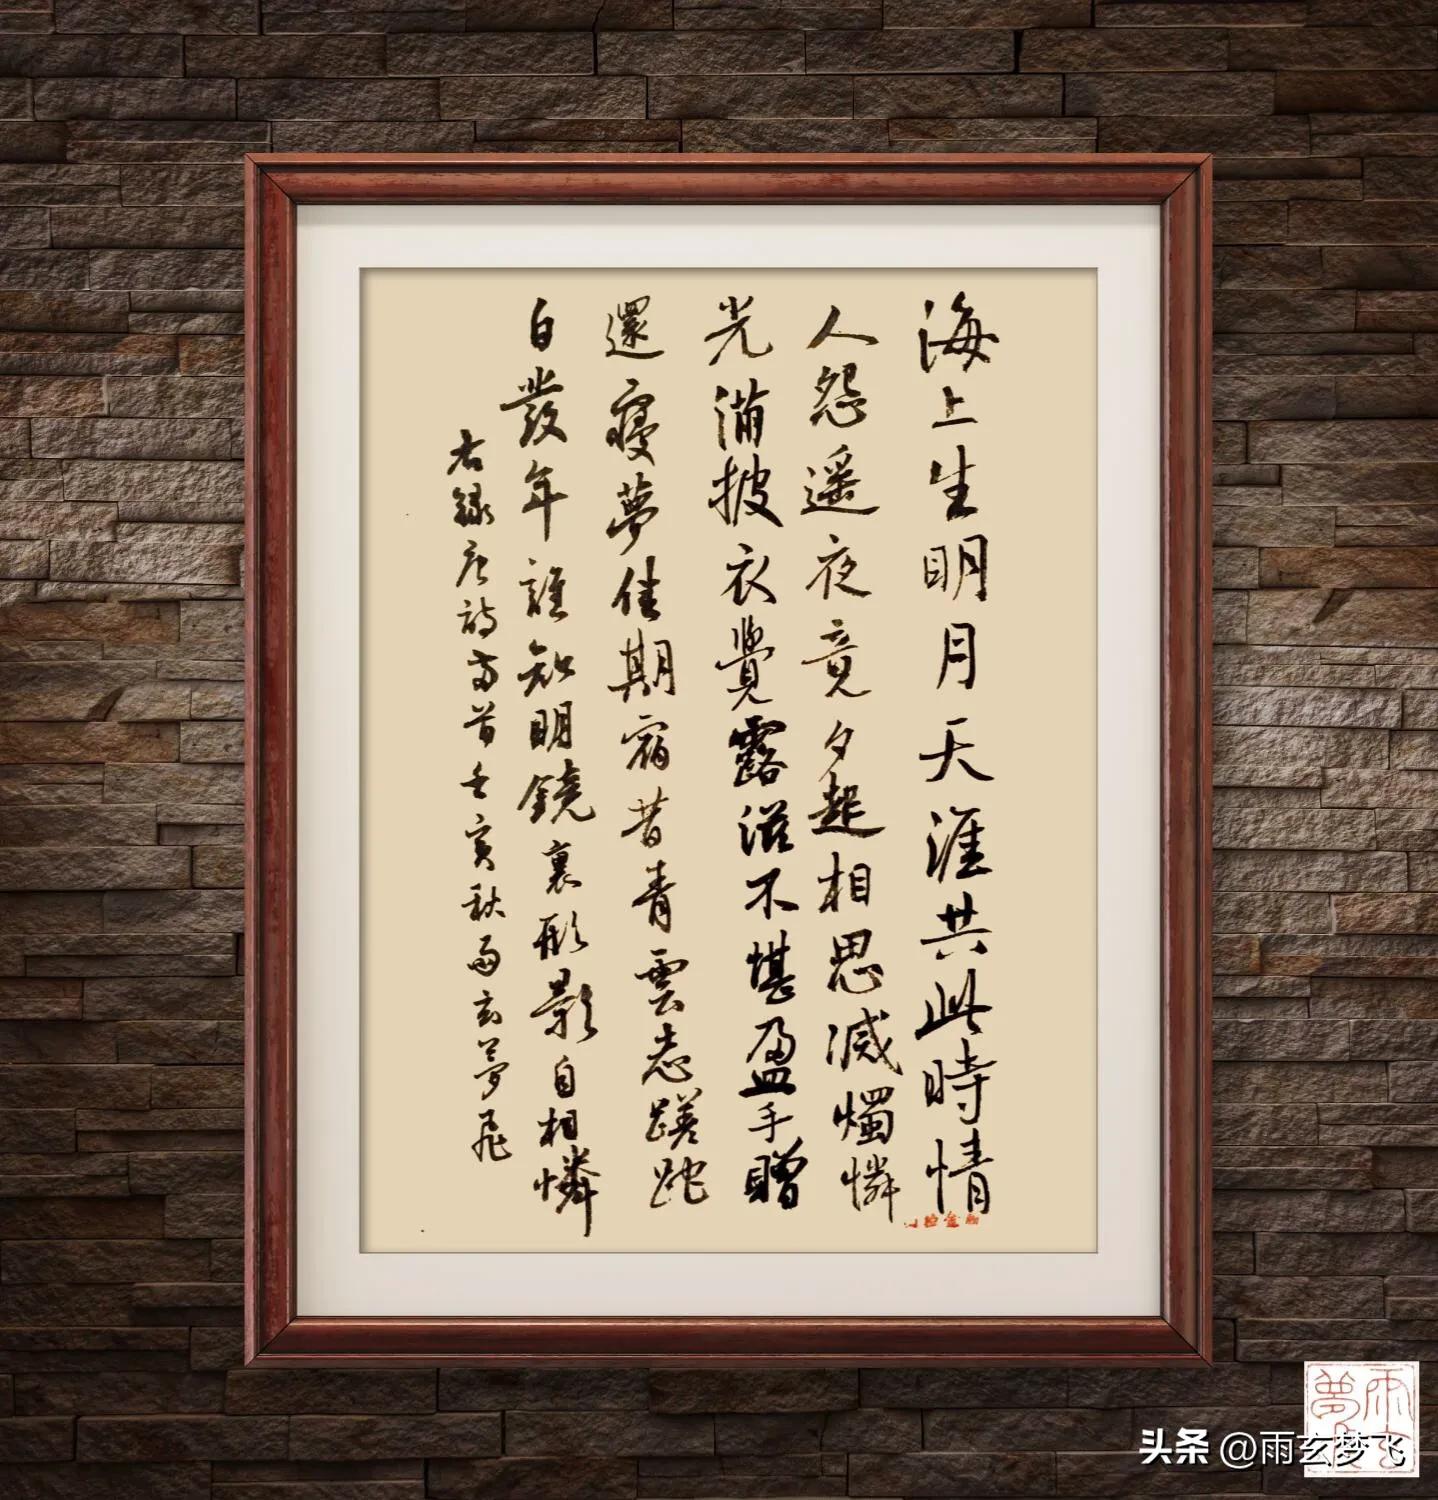 海上生明月天涯共此時情
人怨遥夜竟夕起相思滅燭憐
光滿披衣覺露滋不堪盈手贈
還寢夢佳期宿昔青雲志蹉跎
白發年誰知明鏡裏形影自相憐
右録唐詩两首壬寅秋雨玄夢飛
头条 @雨玄梦飞